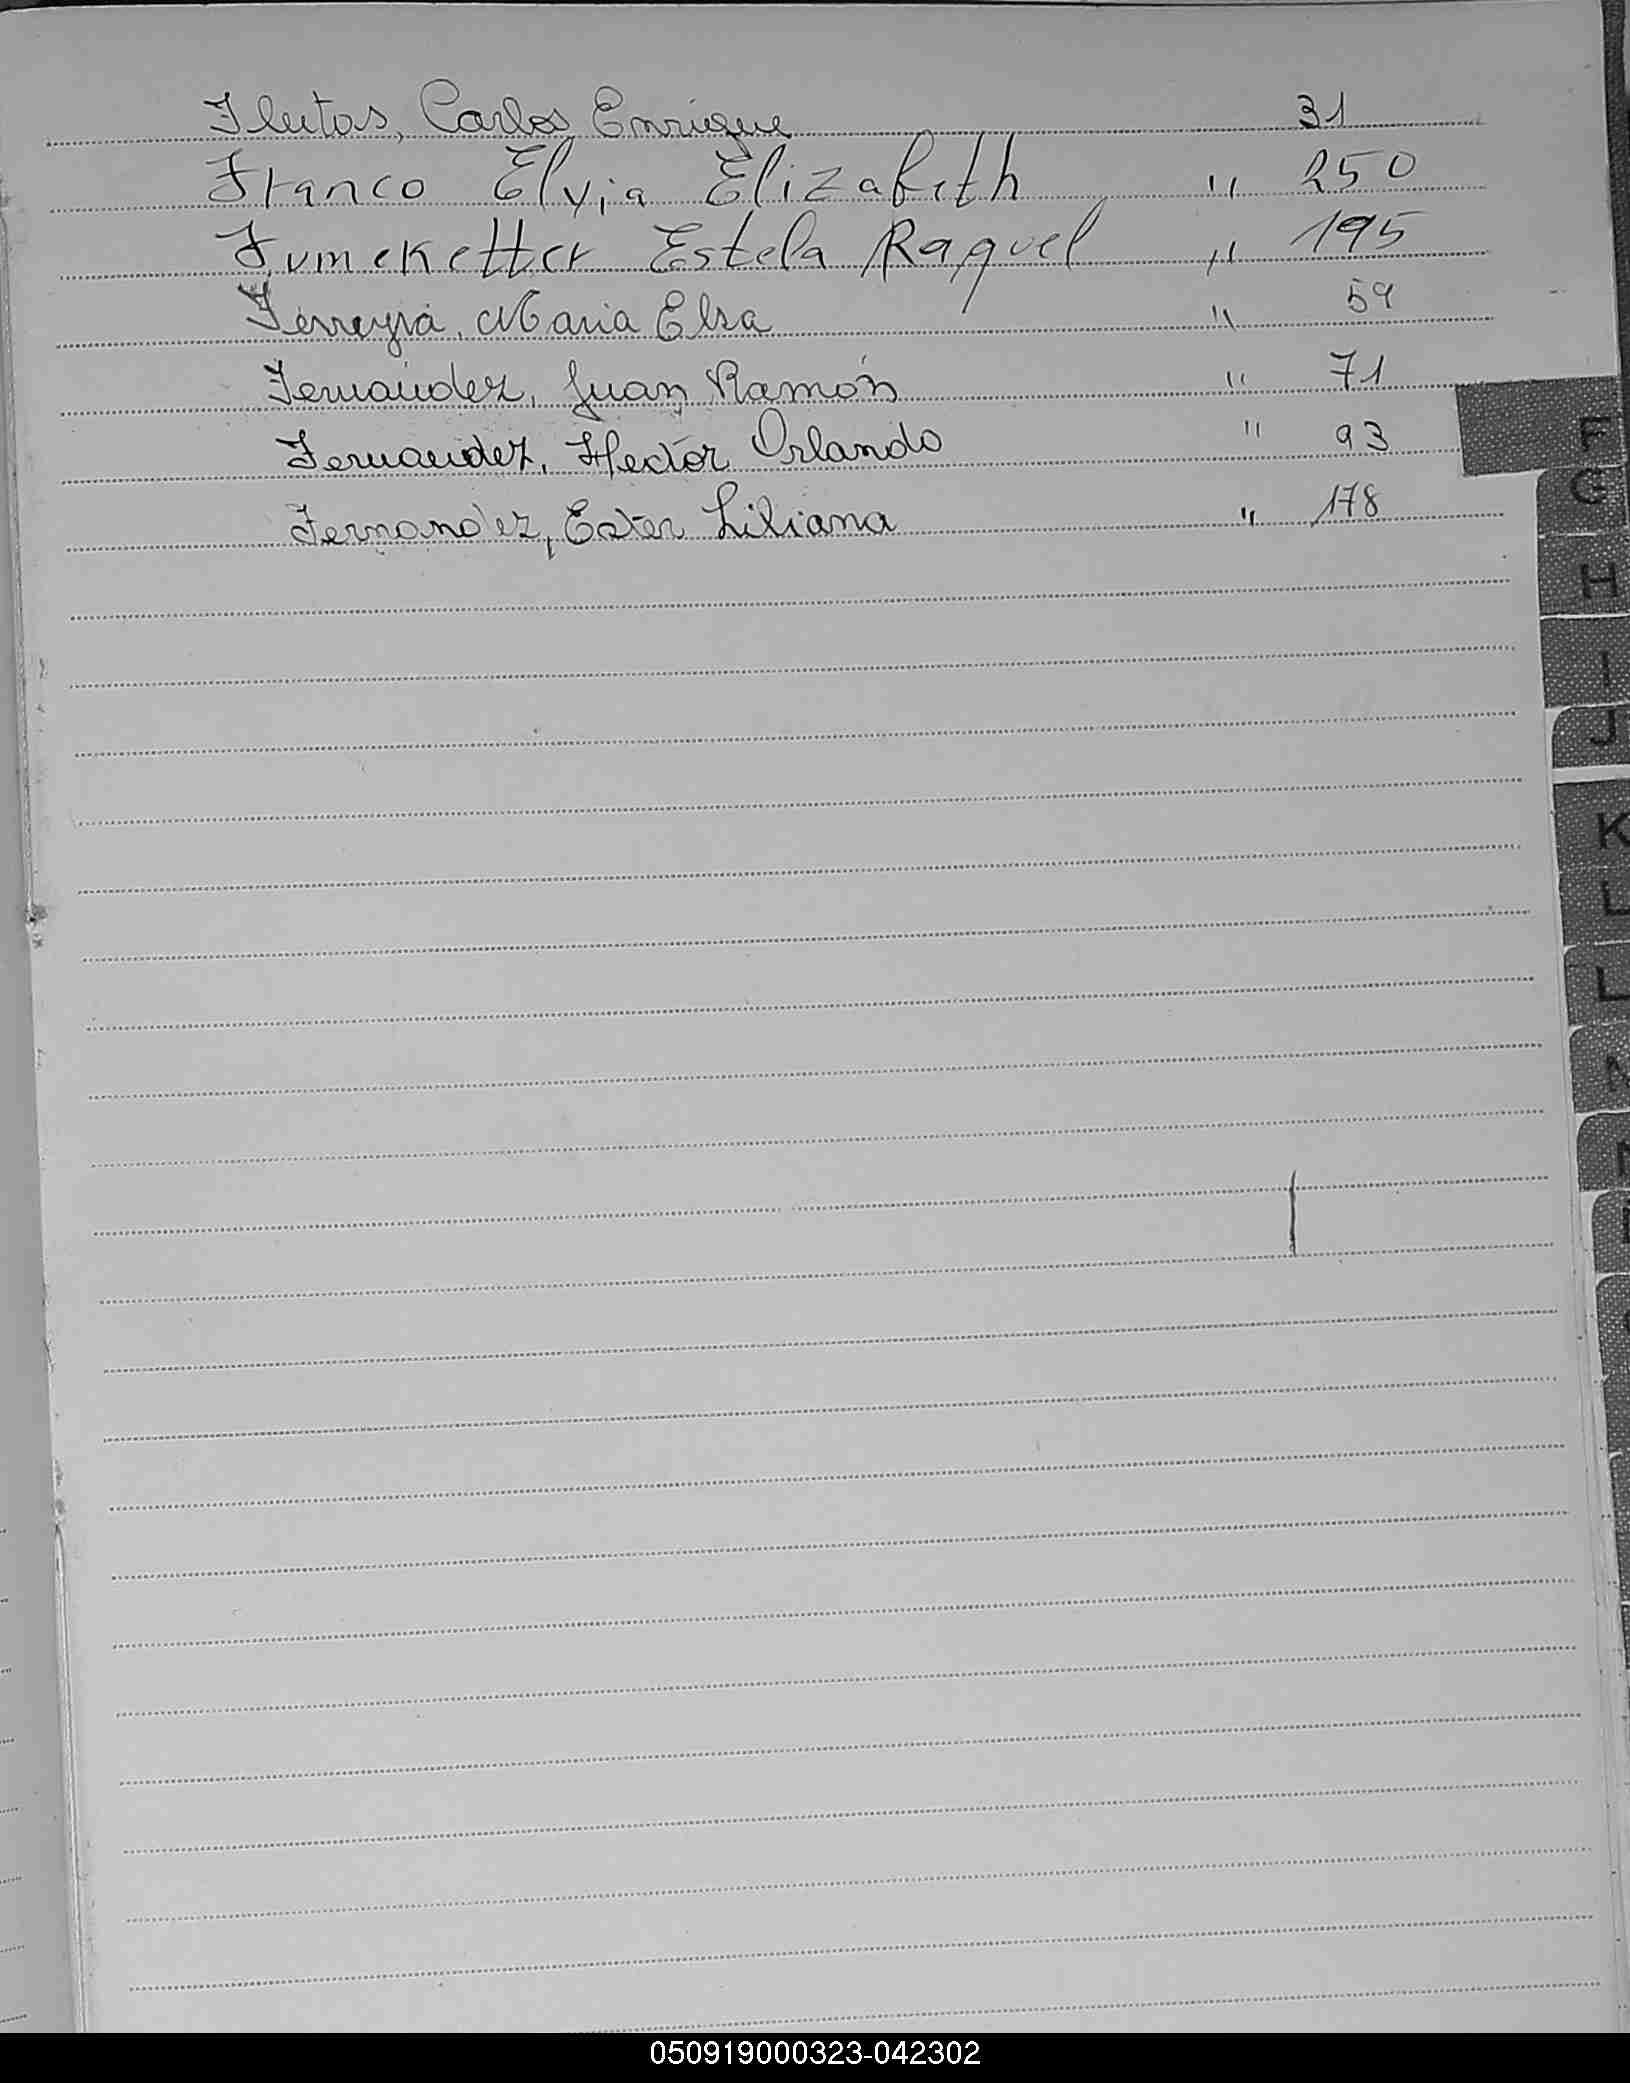 Fleitas, Carlos Enrique 31
Franco Elvia Elizabeth " 250
Fumeketter Estela Raquel " 195
Ferreyra, Maria Elsa " 59
Fernández, Juan Ramón " 71
Fernandez, Hector Orlando " 93
Fernandez, Ester Liliana " 178
F
G
H
I
J
K
L
L
N
050919000323-042302